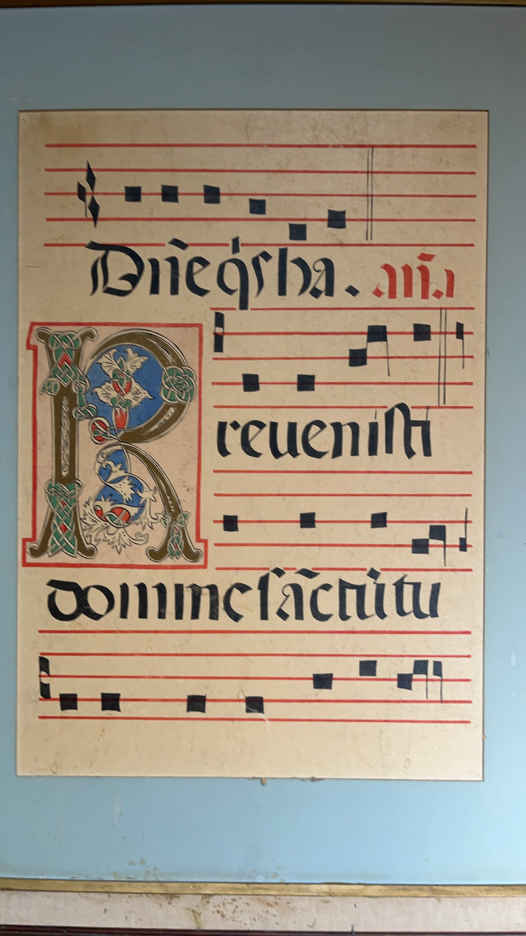 Dñe q̃s hã. añã
Rreuenisti
domine sãctitu